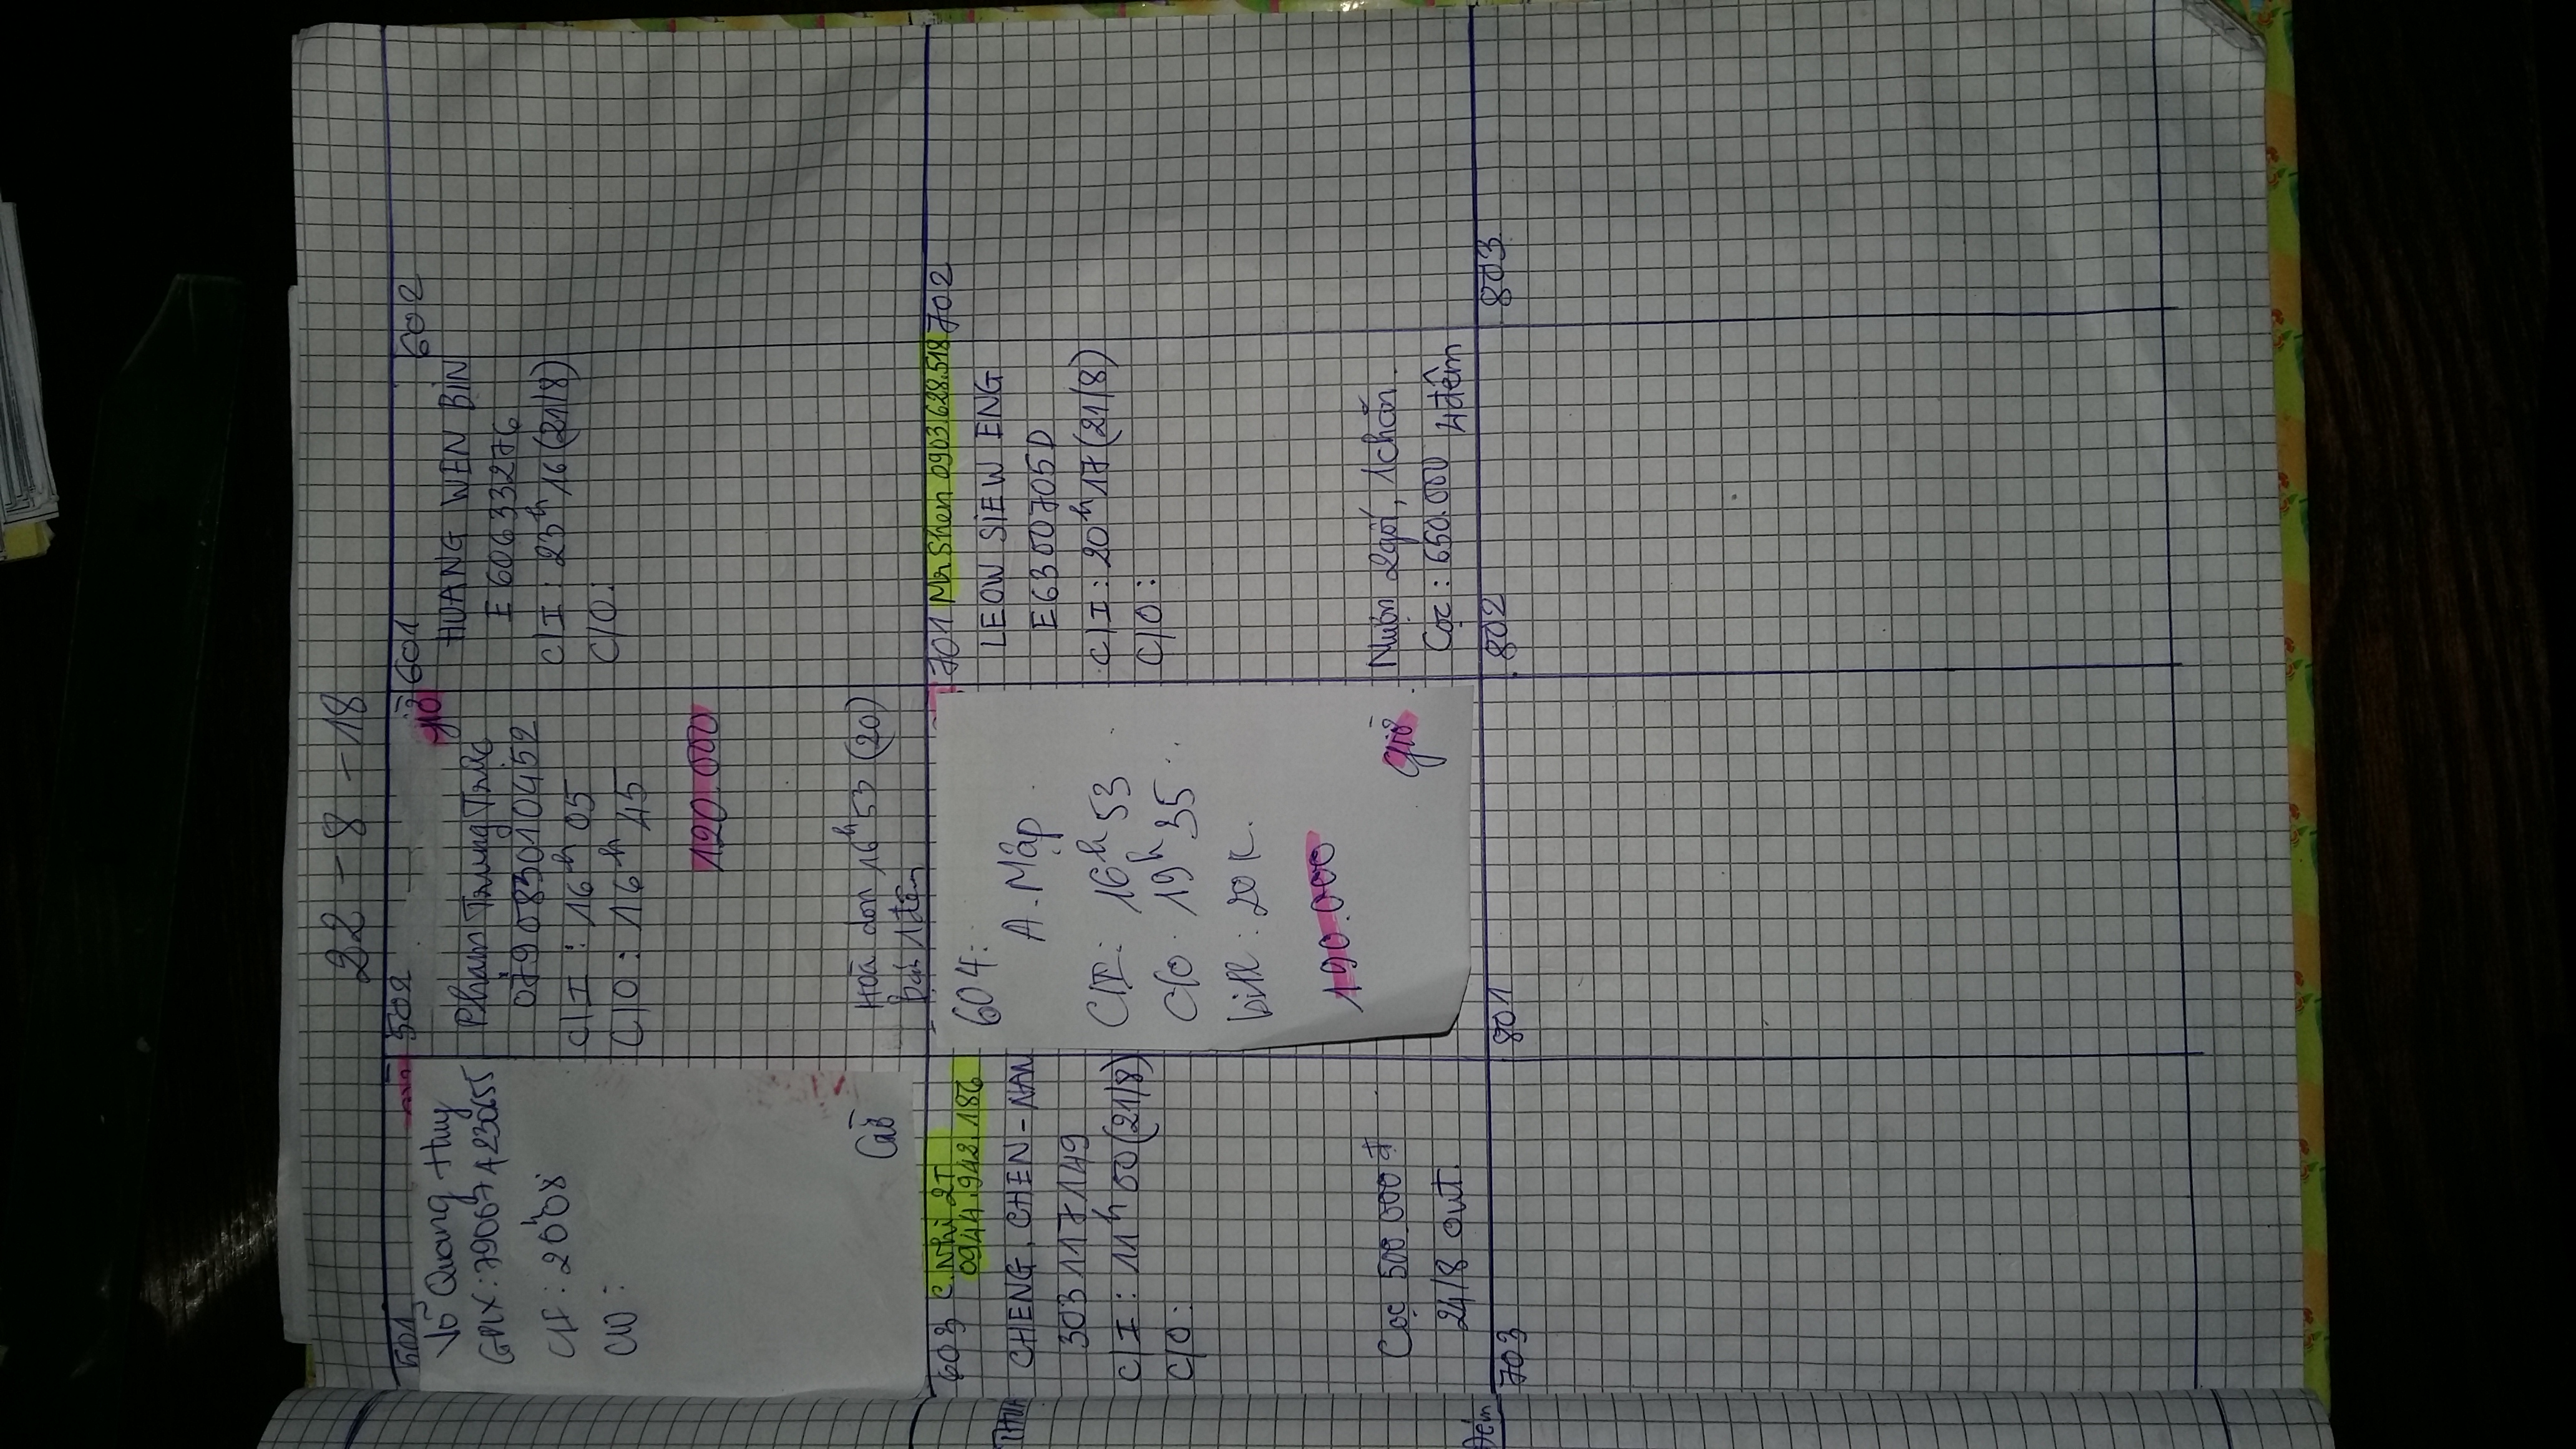 22 - 8 - 18
501
Võ Quang Huy
GPLX: 790674230655
C/I: 20h08
C/O:
502
giờ
Phạm Trung Trực
079083010452
C/I: 16h 05
C/O: 16h 45
120.000
Hoá đơn 16h 53 (20)
1 đêm
601
HUANG WEN BIN
E 60633276
C/I: 23h 16 (21/8)
C/O:
602
603 C. Nhi 2T
0944.942.186
CHENG, CHEN-NAN
303117149
C/I: 11h 00 (21/8)
C/O:
Cọc 500.000đ
24/8 out
604:
A. Mập
C/I: 16h 53
C/O: 19h 35
bill: 20K.
190.000
giờ
701 Mr Shen 0903.628.518
LEOW SIEW ENG
E6300705D
C/I: 20h 17 (21/8)
C/O:
Mượn 2 gối, 1 chăn.
Cọc: 650.000 4 đêm
702
703
801
802
803